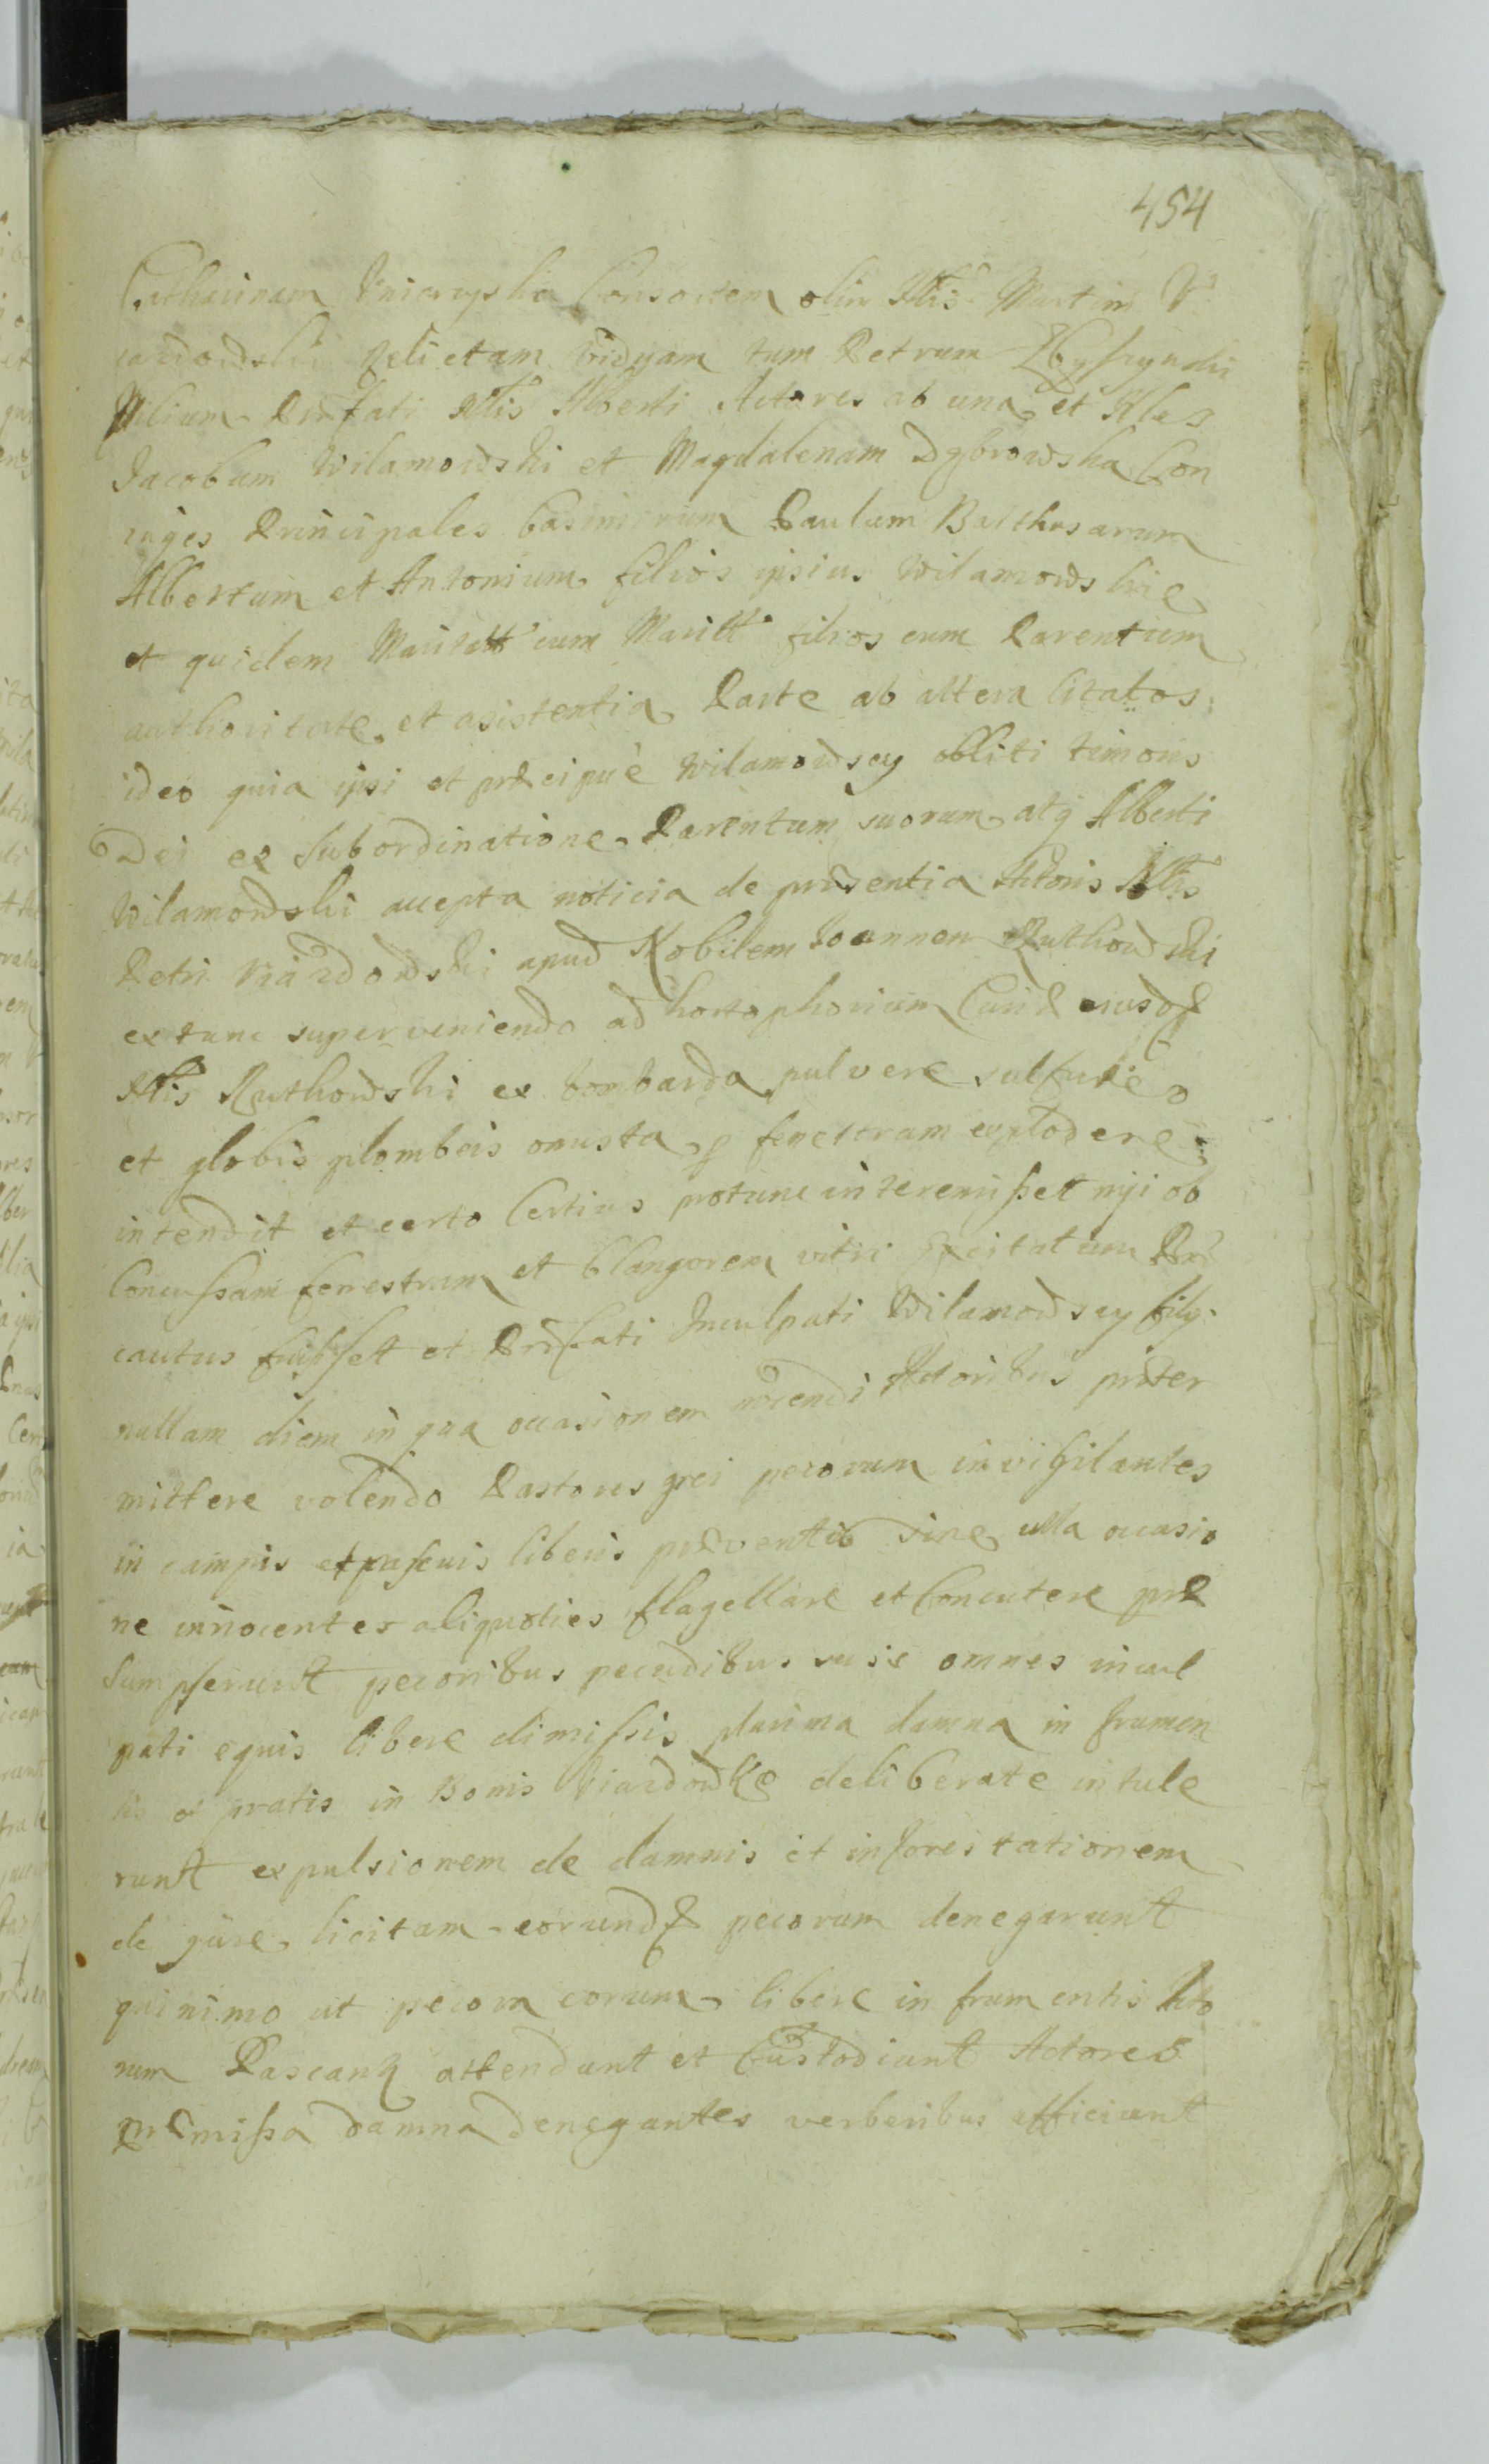 454
Catharinam Consortem olim Martini V
relictam viduam tum Petrum
filium Præfati Alberti Actores ab una et
Jacobum Wilamowski et Magdalenam Dąbrowska Con
iuges Principales Casimirum Paulum Balthasarum
Albertum et Antonium filios ipsius Wilamowskie
et quidem cum Maritt filios cum Parentum
authoritate et asistentia Parte ab altera Citatos
ideo quia ipsi et præcipuè Wilamowscy obliti timoris
Dei ex Subordinatione Parentum suorum atq Alberti
Wilamowski accepta noticia de præsentia Actoris
Petri Viazdowski apud Nobilem Joannem Rutkowski
extunc superveniendo ad Curiæ eiusdē
Rutkowski ex bombarda pulvere sulfureo
et globis plombeis onusta p fenestram explodere
intendit et certo Certius protunc interemisset nisi ob
Concussam fenestram et Clangorem vitri Excitatum Præ
cautus fuisset et Præfati Inculpati Wilamowscy filÿ
nullam diem in qua occasionem nocendi Actoribus præter
mittere volendo Pastores grei pecorum invigilantes
in campis et pascuis liberis præventis sine ulla occasio
ne innocentes aliquoties flagellare et Concutere præ
sumpserunt pecoribus pecudibus suis omnes incul
pati equis libere dimissis plurima damna in frumen
tis et pratis in Bonis deliberate intule
runt expulsionem de damnis et
de jure licitam eorundē pecorum denegarunt
quinimo ut pecora eorum libere in frumentis Acto
rum Pascant attendunt et Custodiunt Actores
præmissa damna denegantes verberibus afficiunt